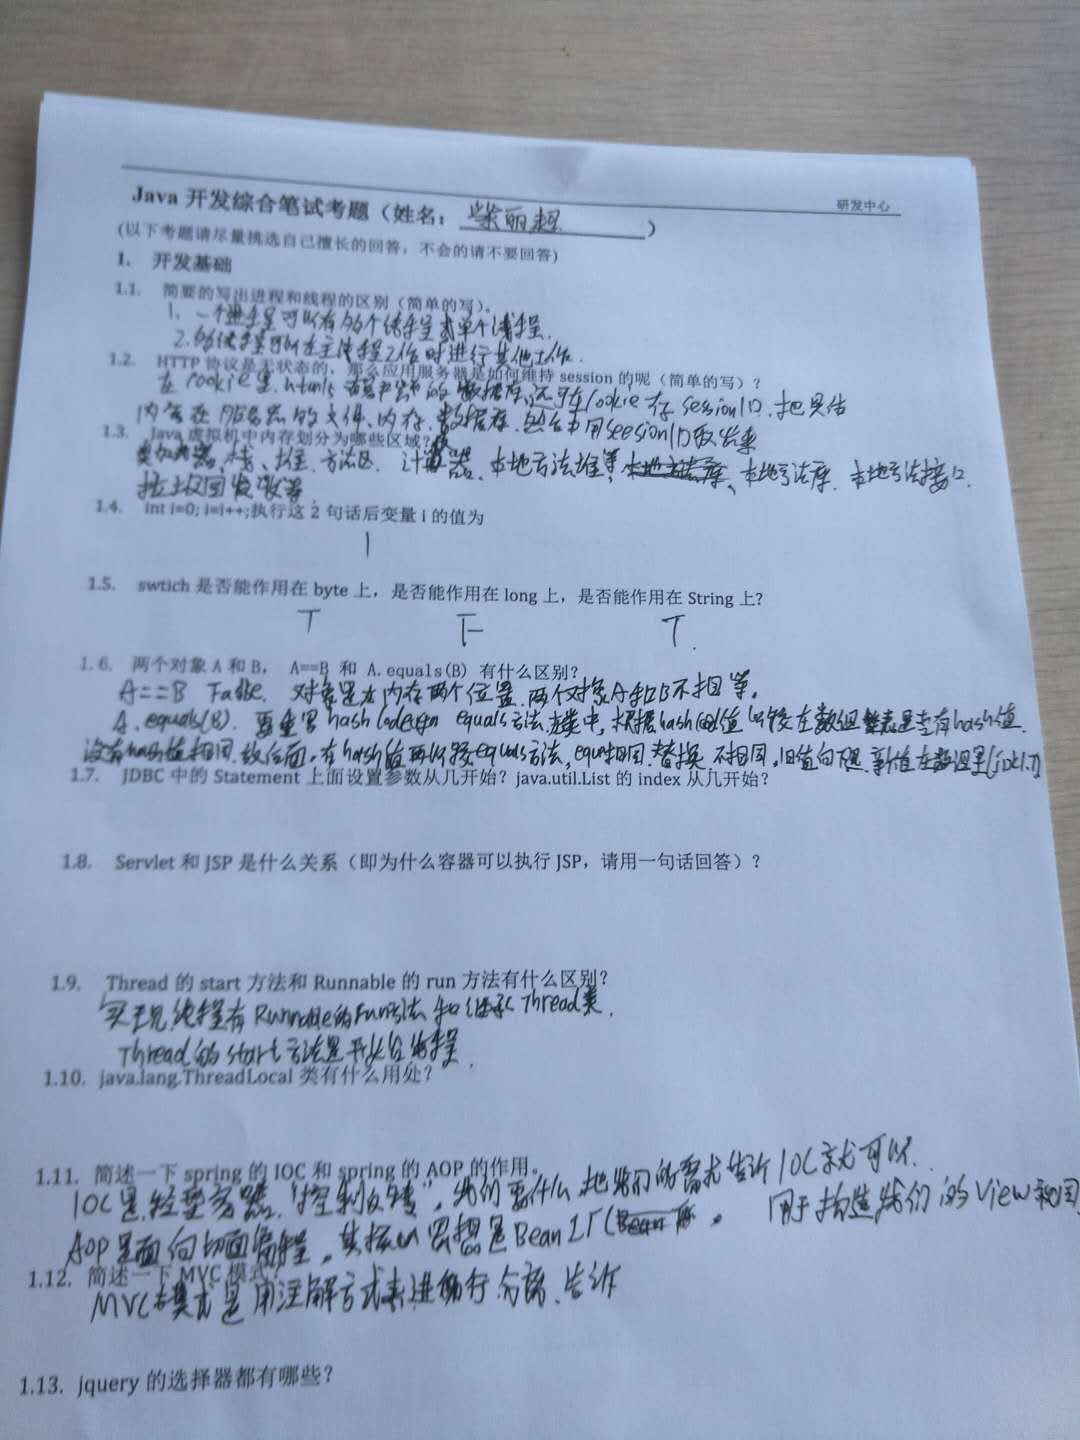 研发中心
Java 开发综合笔试考题（姓名：柴丽超）
(以下考题请尽量挑选自己擅长的回答，不会的请不要回答)
1. 开发基础
1.1. 简要的写出进程和线程的区别（简单的写）。
1. 一个进程可以有多个线程或单个线程.
2. 多线程可以在主线程工作时进行其他工作.
1.2. HTTP 协议是无状态的，那么应用服务器是如何维持 session 的呢（简单的写）？
在 cookie里. html5 的数据库,还可在cookie存 session ID. 把具体
内容在服务器的文件、内存、数据库. 然后再用seesion ID取出来
1.3. Java 虚拟机中内存划分为哪些区域？
类加载器、栈、堆、方法区、计数器、本地方法堆等、本地方法库、本地方法接口.
垃圾回收器等
1.4. int i=0; i=i++;执行这 2 句话后变量 i 的值为
1
1.5. swtich 是否能作用在 byte 上，是否能作用在 long 上，是否能作用在 String 上?
T F T.
1.6. 两个对象 A 和 B， A==B 和 A.equals(B) 有什么区别?
A==B False. 对象是在内存两个位置. 两个对象A和B不相等。
A.equals(B). 要重写hashCode equals方法 类中, 根据hash 值 比较在数组 是否有hash值.
没有hash值相同.放后面. 有hash值再比较equals方法, equals相同.替换. 不相同, 旧值向下 新值在数组里(jdk1.7)
1.7. JDBC 中的 Statement 上面设置参数从几开始？java.util.List 的 index 从几开始?
1.8. Servlet 和 JSP 是什么关系（即为什么容器可以执行 JSP，请用一句话回答）？
1.9. Thread 的 start 方法和 Runnable 的 run 方法有什么区别?
实现线程有 Runnable的run方法 和 继承 Thread类.
Thread的 start 方法是开启线程.
1.10. java.lang.ThreadLocal 类有什么用处?
1.11. 简述一下 spring 的 IOC 和 spring 的 AOP 的作用。
IOC是 轻型容器. "控制反转", 我们要什么 把我们的需求告诉 IOC就可以.
AOP是面向切面编程. 其核心思想是Bean 工厂 用于构造我们的View
1.12. 简述一下 MVC 模式?
MVC模式是 用注解方式来进行分离、告诉
1.13. jquery 的选择器都有哪些?